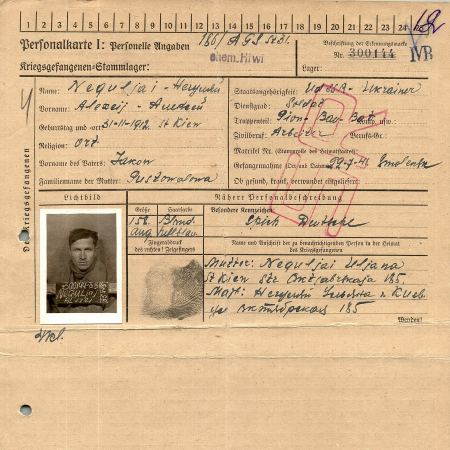 1 2 3 4 5 6 7 8 9 10 11 12 13 14 15 16 17 18 19 20 21 22 23 24 25
Personalkarte I: Personelle Angaben
Kriegsgefangenen-Stammlager:
Beschriftung der Erkennungsmarke
Nr. 300144 IVB
Lager:
Des Kriegsgefangenen
Name: Neguljai - Негуляй
Vorname: Alexej -
Geburtstag und -ort 31-11-1912 St Kien
Religion: Ort
Vorname des Vaters: Jakon
Familienname der Mutter: Pustowolowa
Staatsangehörigkeit: UdSSR - Ukrainer
Dienstgrad: Soldat
Truppenteil: Pion - Bau - Bat. Komp. usw.:
Zivilberuf: Arbeiter Berufs-Gr.:
Matrikel Nr. (Stammrolle des Heimatstaates):
Gefangennahme (Ort und Datum): 29-7-41 Smolensk
Ob gesund, krank, verwundet eingeliefert:
Lichtbild
Nähere Personalbeschreibung
Größe Haarfarbe
158. Blond
Besondere Kennzeichen:
Fingerabdruck
des rechten! Zeigefingers
Name und Anschrift der zu benachrichtigenden Person in der Heimat
des Kriegsgefangenen
Mutter: Neguljai Uljana
St Kien Str 185
Мать: Негуляй Ульяна г. Киев
ул Октябрьская 185
Wenden!